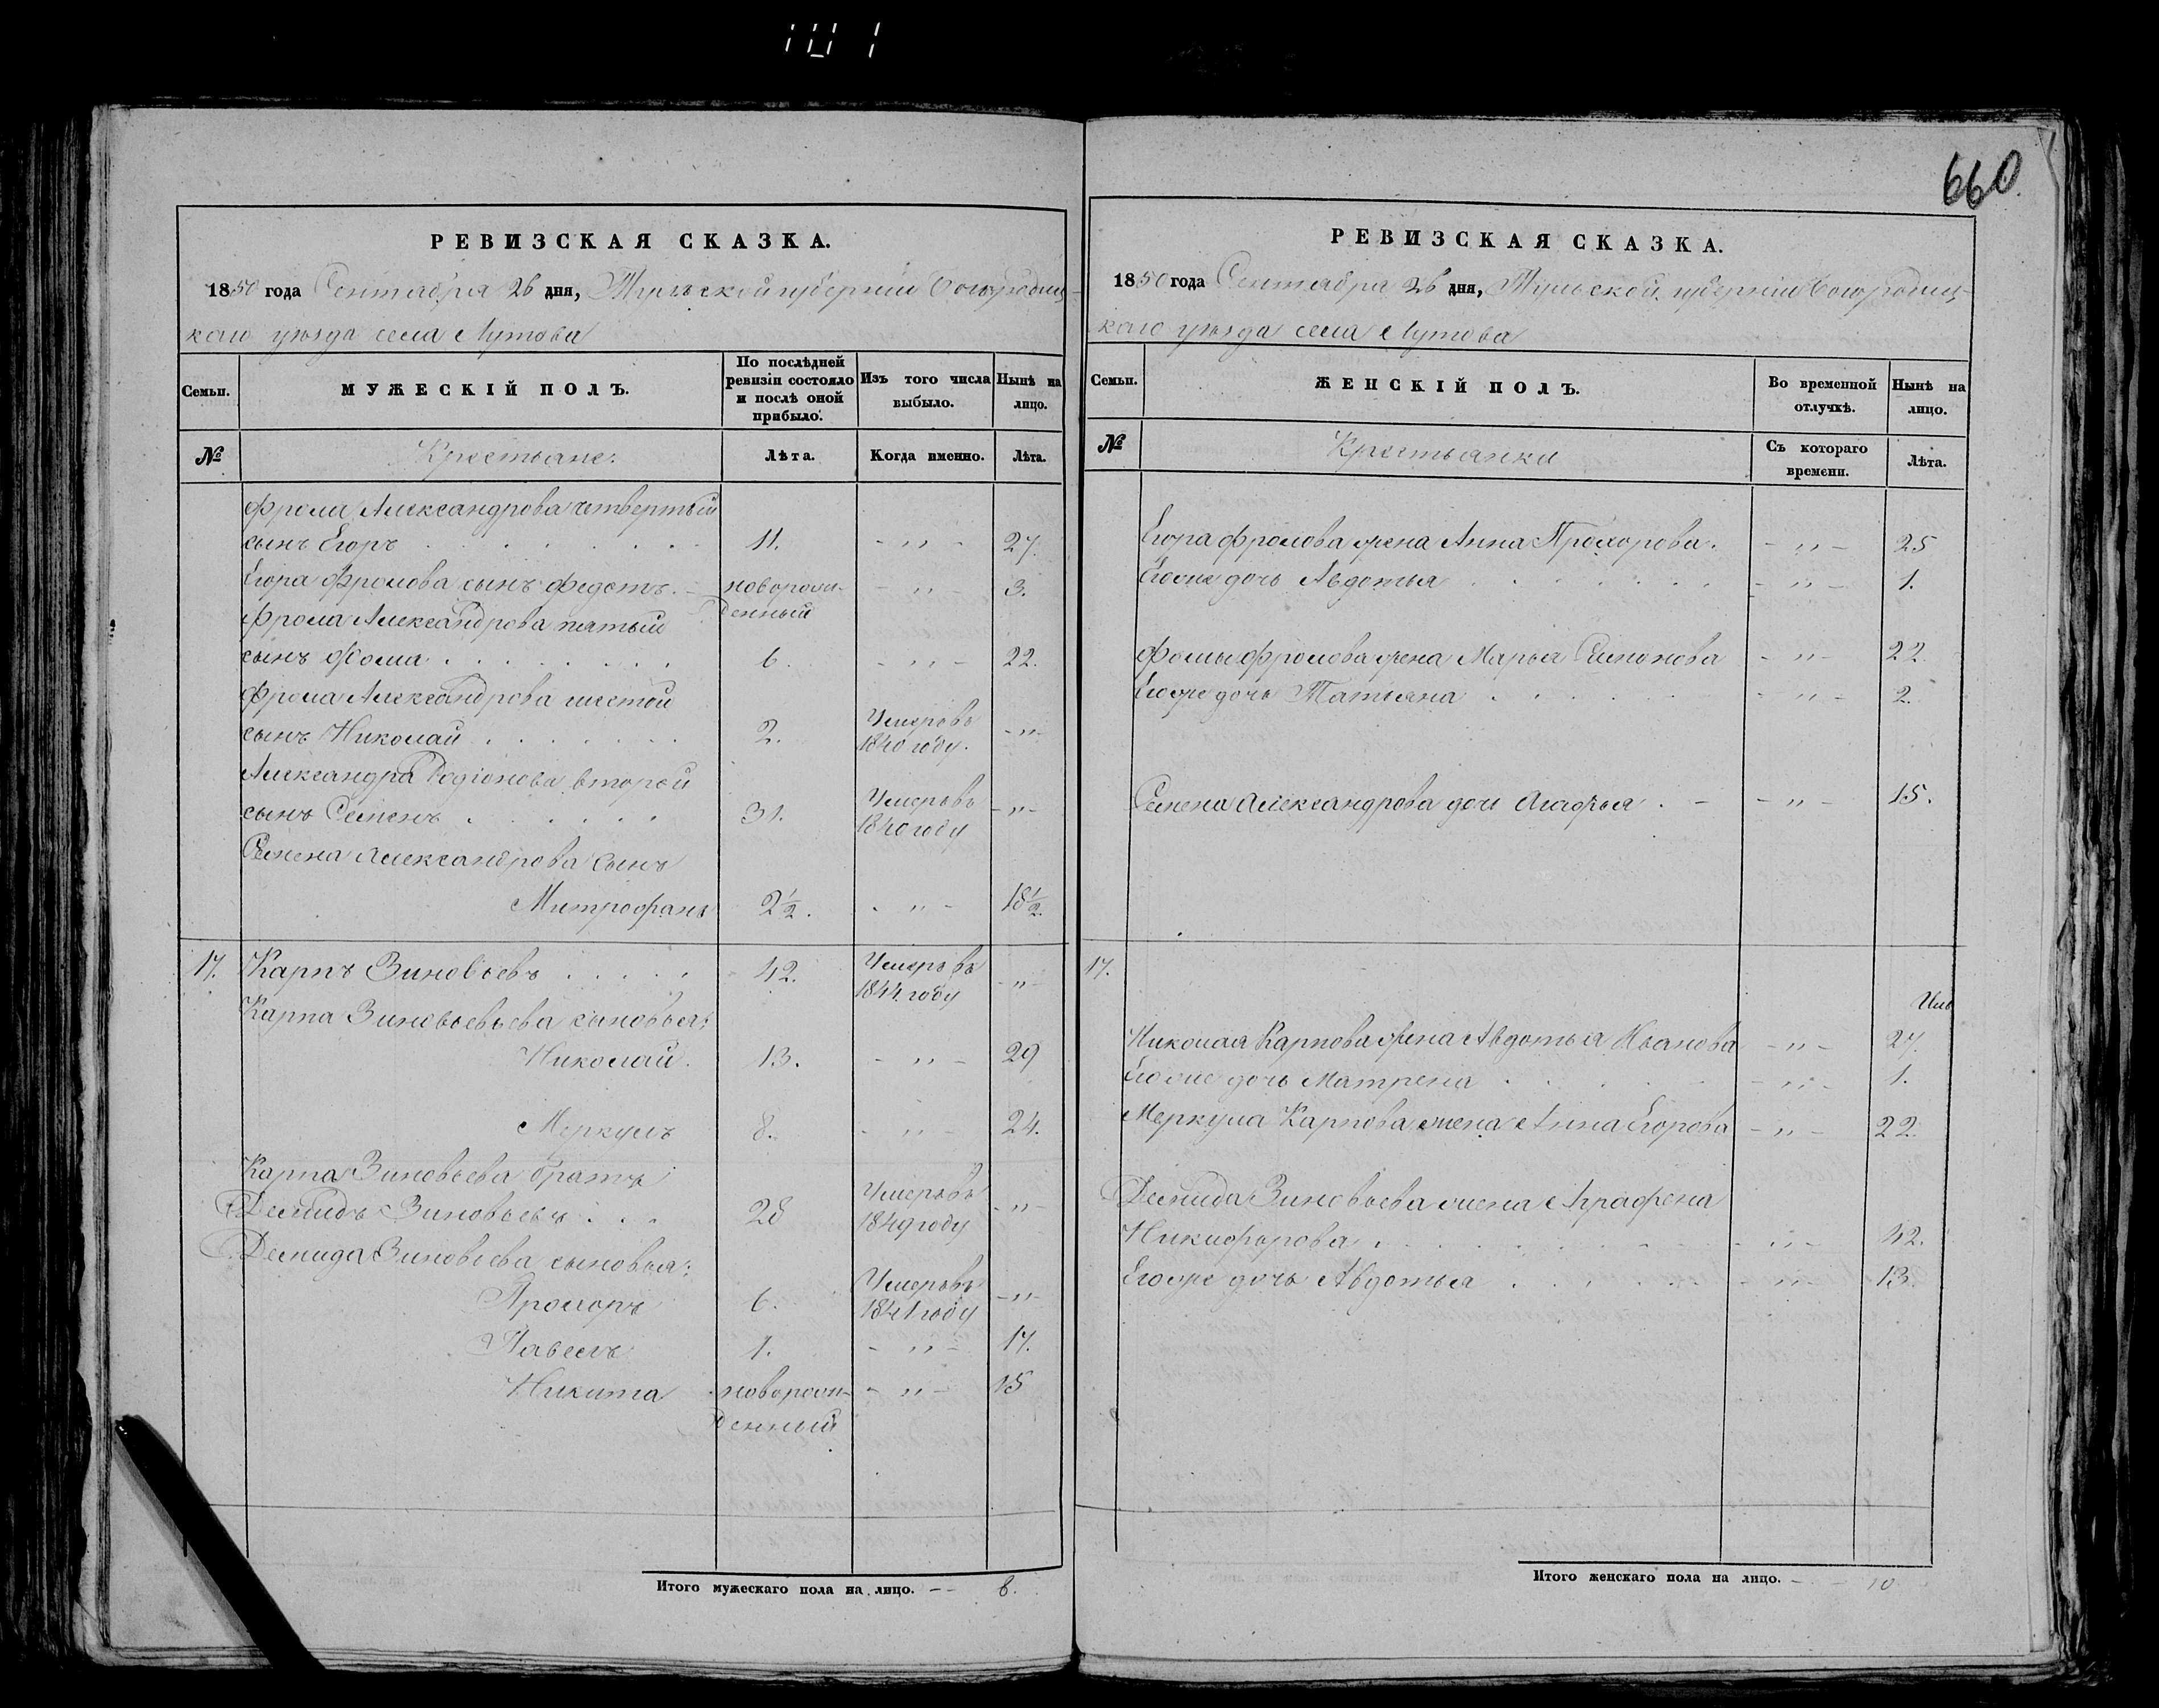 101
660.
РЕВИЗСКАЯ СКАЗКА.
1850 года Сентября 26 дня, Тульской губерніи Богородиц-
каго уѣзда села Лутова
Семьи.
МУЖЕСКІЙ ПОЛЪ.
По послѣдней ревизіи состояло и послѣ оной прибыло.
Изъ того числа выбыло.
Нынѣ на лицо.
№
Крестьяне:
Лѣта.
Когда именно.
Лѣта.
Фрола Александрова четвертый
сынъ Егоръ . . . . . . . 11. - „ - 27.
Егора Фролова сынъ Федотъ. - новорож- - „ - 3.
денный
Фрола Александрова пятый
сынъ Фома . . . . . . . 6. - „ - 22.
Фрола Александрова шестой
сынъ Николай . . . . . . 2. Умеръ въ 1840 году. - „ -
Александра Родіонова второй
сынъ Семенъ . . . . . . 31. Умеръ въ 1840 году - „ -
Семена Александрова сынъ
Митрофанъ 2½. - „ - 18½.
17. Карпъ Зиновьевъ . . . . . 42. Умеръ въ 1844 году - „ -
Карпа Зиновьевьева сыновья:
Николай. 13. - „ - 29
Меркулъ 8. - „ - 24.
Карпа Зиновьева братъ
Демидъ Зиновьевъ . . . 28 Умеръ въ 1849 году - „ -
Демида Зиновьева сыновья:
Прохоръ 6. Умеръ въ 1841 году - „ -
Павелъ 1. - „ - 17.
Никита новорож- - „ - 15
денный
Итого мужескаго пола на лицо. - - 8.
РЕВИЗСКАЯ СКАЗКА.
1850 года Сентября 26 дня, Тульской губерніи Богородиц-
каго уѣзда села Лутова
Семьи.
ЖЕНСКІЙ ПОЛЪ.
Во временной отлучкѣ.
Нынѣ на лицо.
№
Крестьянки
Съ котораго времени.
Лѣта.
Егора Фролова жена Анна Прохорова. - „ - 25
Егоже дочь Авдотья . . . . . . - „ - 1.
Фомы Фролова жена Марья Симонова - „ - 22.
Егоже дочь Татьяна . . . . . - „ - 2.
Семена Александрова дочь Агафья . - - „ - 15.
17.
Николая Карпова жена Авдотья Иванова - „ - 27.
Егоже дочь Матрена . . . . . - „ - 1.
Меркула Карпова жена Анна Егорова - „ - 22.
Демида Зиновьева жена Аграфена
Никифорова . . . . . . . - „ - 42.
Егоже дочь Авдотья . . . . . - „ - 13.
Итого женскаго пола на лицо. - - 10